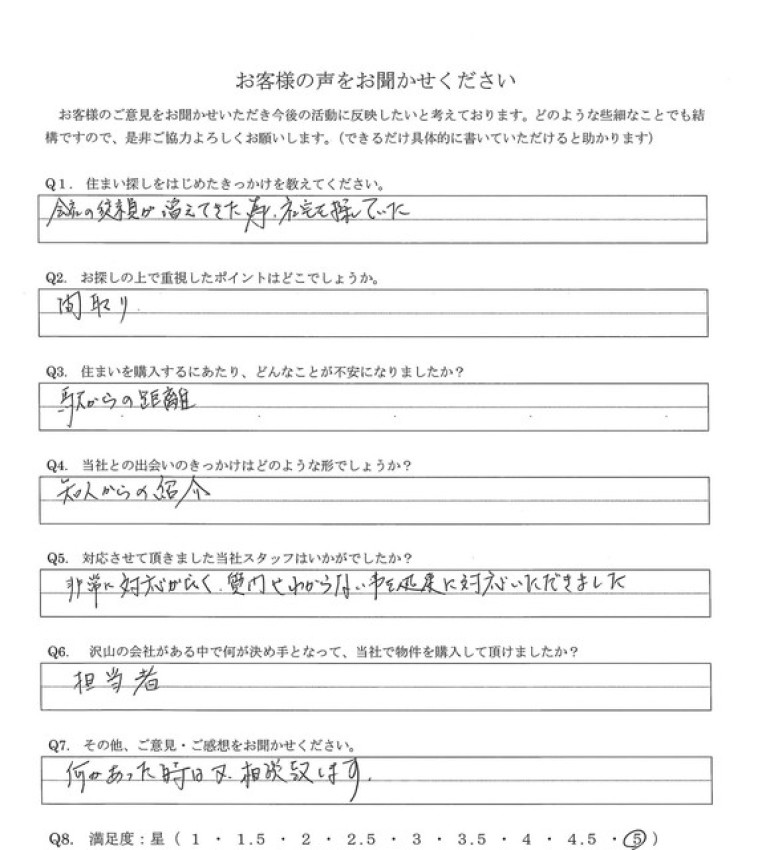 お客様の声をお聞かせください
お客様のご意見をお聞かせいただき今後の活動に反映したいと考えております。どのような些細なことでも結
構ですので、是非ご協力よろしくお願いします。（できるだけ具体的に書いていただけると助かります）
Q1. 住まい探しをはじめたきっかけを教えてください。
会社の 員が増えてきた 社宅を探していた
Q2. お探しの上で重視したポイントはどこでしょうか。
間取り
Q3. 住まいを購入するにあたり、どんなことが不安になりましたか？
駅からの距離
Q4. 当社との出会いのきっかけはどのような形でしょうか？
知人からの紹介
Q5. 対応させて頂きました当社スタッフはいかがでしたか？
非常に対応が 質問やわからない事を 対応いただきました
Q6. 沢山の会社がある中で何が決め手となって、当社で物件を購入して頂けましたか？
担当者
Q7. その他、ご意見・ご感想をお聞かせください。
何かあった時は又、相談致します。
Q8. 満足度：星（ 1 ・ 1.5 ・ 2 ・ 2.5 ・ 3 ・ 3.5 ・ 4 ・ 4.5 ・ 5 ）